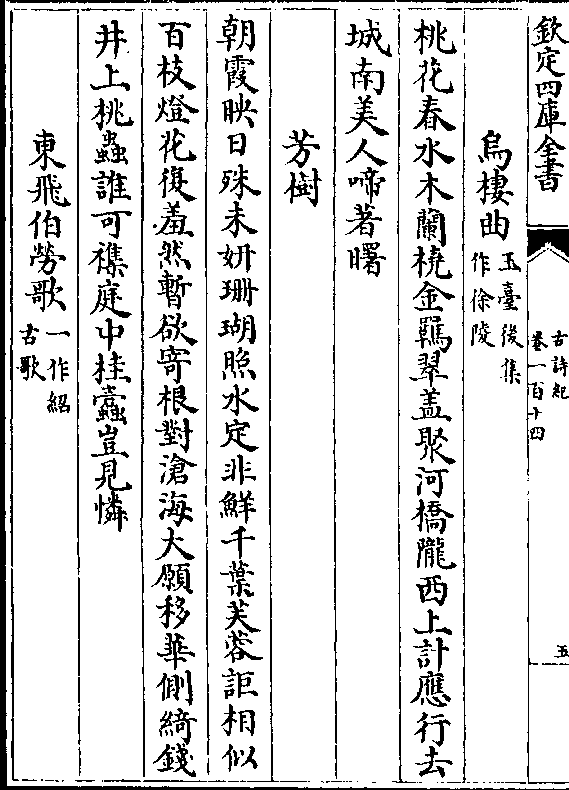 欽定四庫全書
古詩紀
卷一百十四
五
烏棲曲
玉臺後集
作徐陵
桃花春水木蘭橈金羈翠盖聚河橋隴西上計應行去
城南美人啼著曙
芳樹
朝霞映日殊未妍珊瑚照水定非鮮千葉芙蓉詎相似
百枝燈花復羞然暫欲寄根對滄海大願移華側綺錢
井上桃蟲誰可襍庭中桂蠹豈見憐
東飛伯勞歌
一作紹
古歌